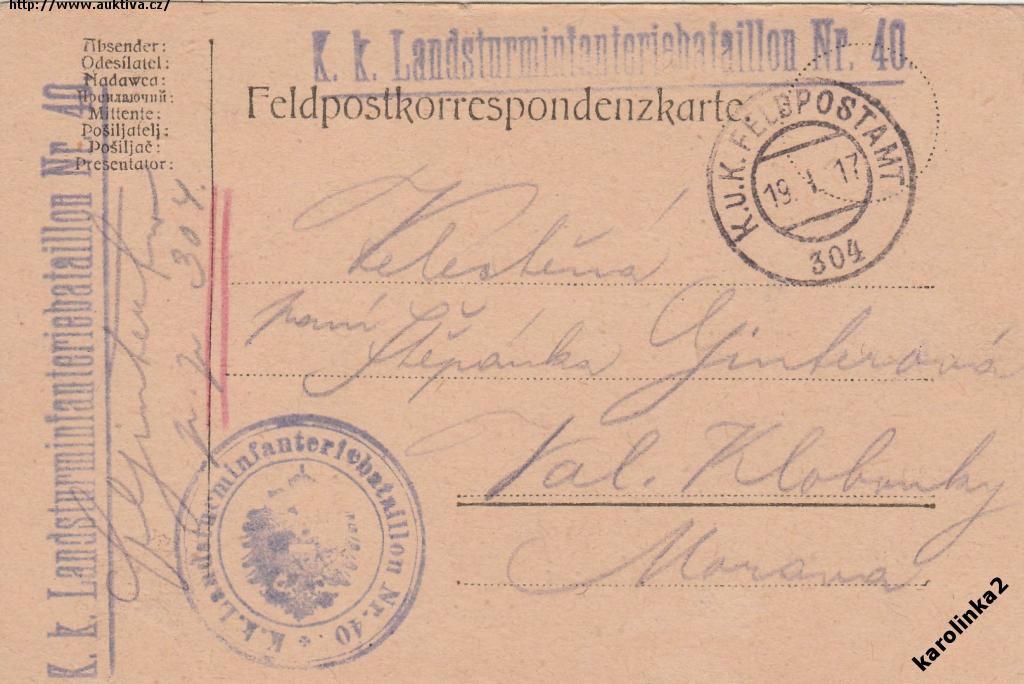 http://www.auktiva.cz/
K. k. Landsturminfanteriebataillon Nr. 40.
Absender:
Odesílatel:
Nadawca:
Посилаючий:
Mittente:
Pošiljatelj:
Pošiljač:
Presentator:
Feldpostkorrespondenzkarte.
K.u.K. FELDPOSTAMT
19. I. 17
304
K. k. Landsturminfanteriebataillon Nr. 40.
304.
paní
Štěpánka Ginterová
Val. Klobouky
Morava
K.k. Landsturminfanteriebataillon Nr. 40.
karolinka2